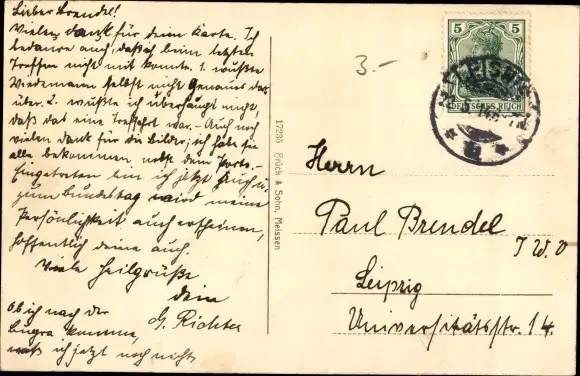 Lieber Brendel!
Vielen Dank für deine Karte. Ich
bedaure auch, daß ich beim letzten
Treffen nicht mit konnte. 1. wußte
Wiedemann selbst nicht Genaues dar
über. 2. wußte ich überhaupt nicht,
daß das eine Treffahrt war. - Auch noch
vielen Dank für die Bilder; ich habe sie
alle bekommen, nebst dem Porto.-
Eingetreten bin ich jetzt auch u.
zum Bundestag wird meine
Persönlichkeit auch erscheinen,
hoffentlich deine auch.
Viele Heilgrüße
dein
G. Richter
Ob ich nach der
Bugra komme,
weiß ich jetzt noch nicht
17235 Brück & Sohn, Meissen
3.-
5 5
DEUTSCHES REICH
Herrn
Paul Brendel
I W O
Leipzig
Universitätsstr. 14.